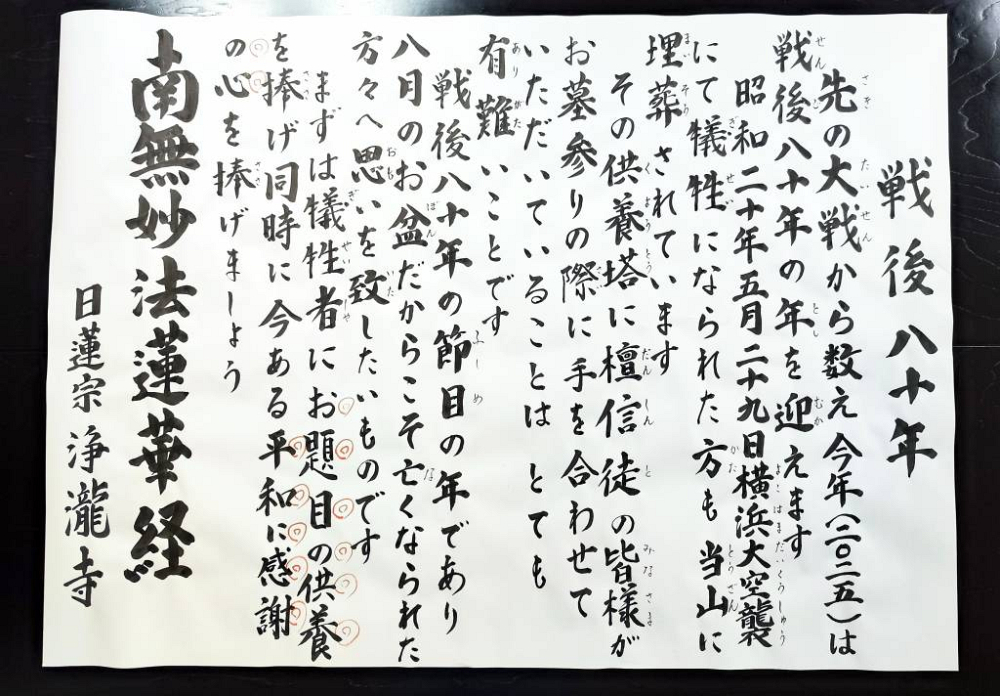 戦後八十年
先の大戦から数え今年（二〇二五）は
戦後八十年の年を迎えます
昭和二十年五月二十九日横浜大空襲
にて犠牲になられた方も当山に
埋葬されています
その供養塔に檀信徒の皆様が
お墓参りの際に手を合わせて
いただいていることは とても
有難いことです
戦後八十年の節目の年であり
八月のお盆だからこそ亡くなられた
方々へ思いを致したいものです
まずは犠牲者にお題目の供養
を捧げ同時に今ある平和に感謝
の心を捧げましょう
南無妙法蓮華経
日蓮宗 浄瀧寺